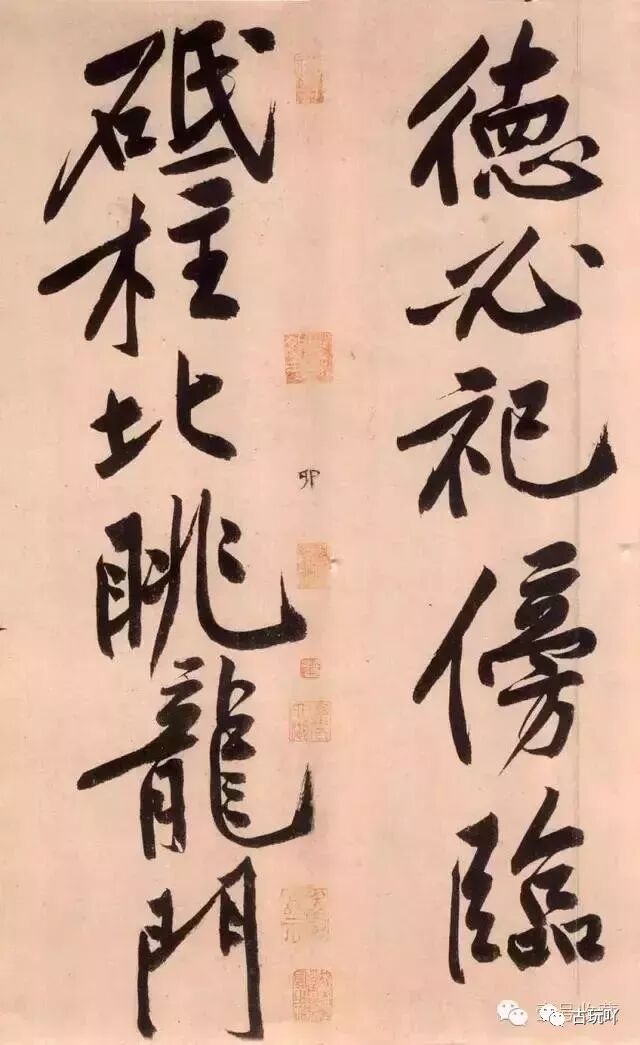 德必祀傍臨
卯
砥柱北眺龍門
古玩吖